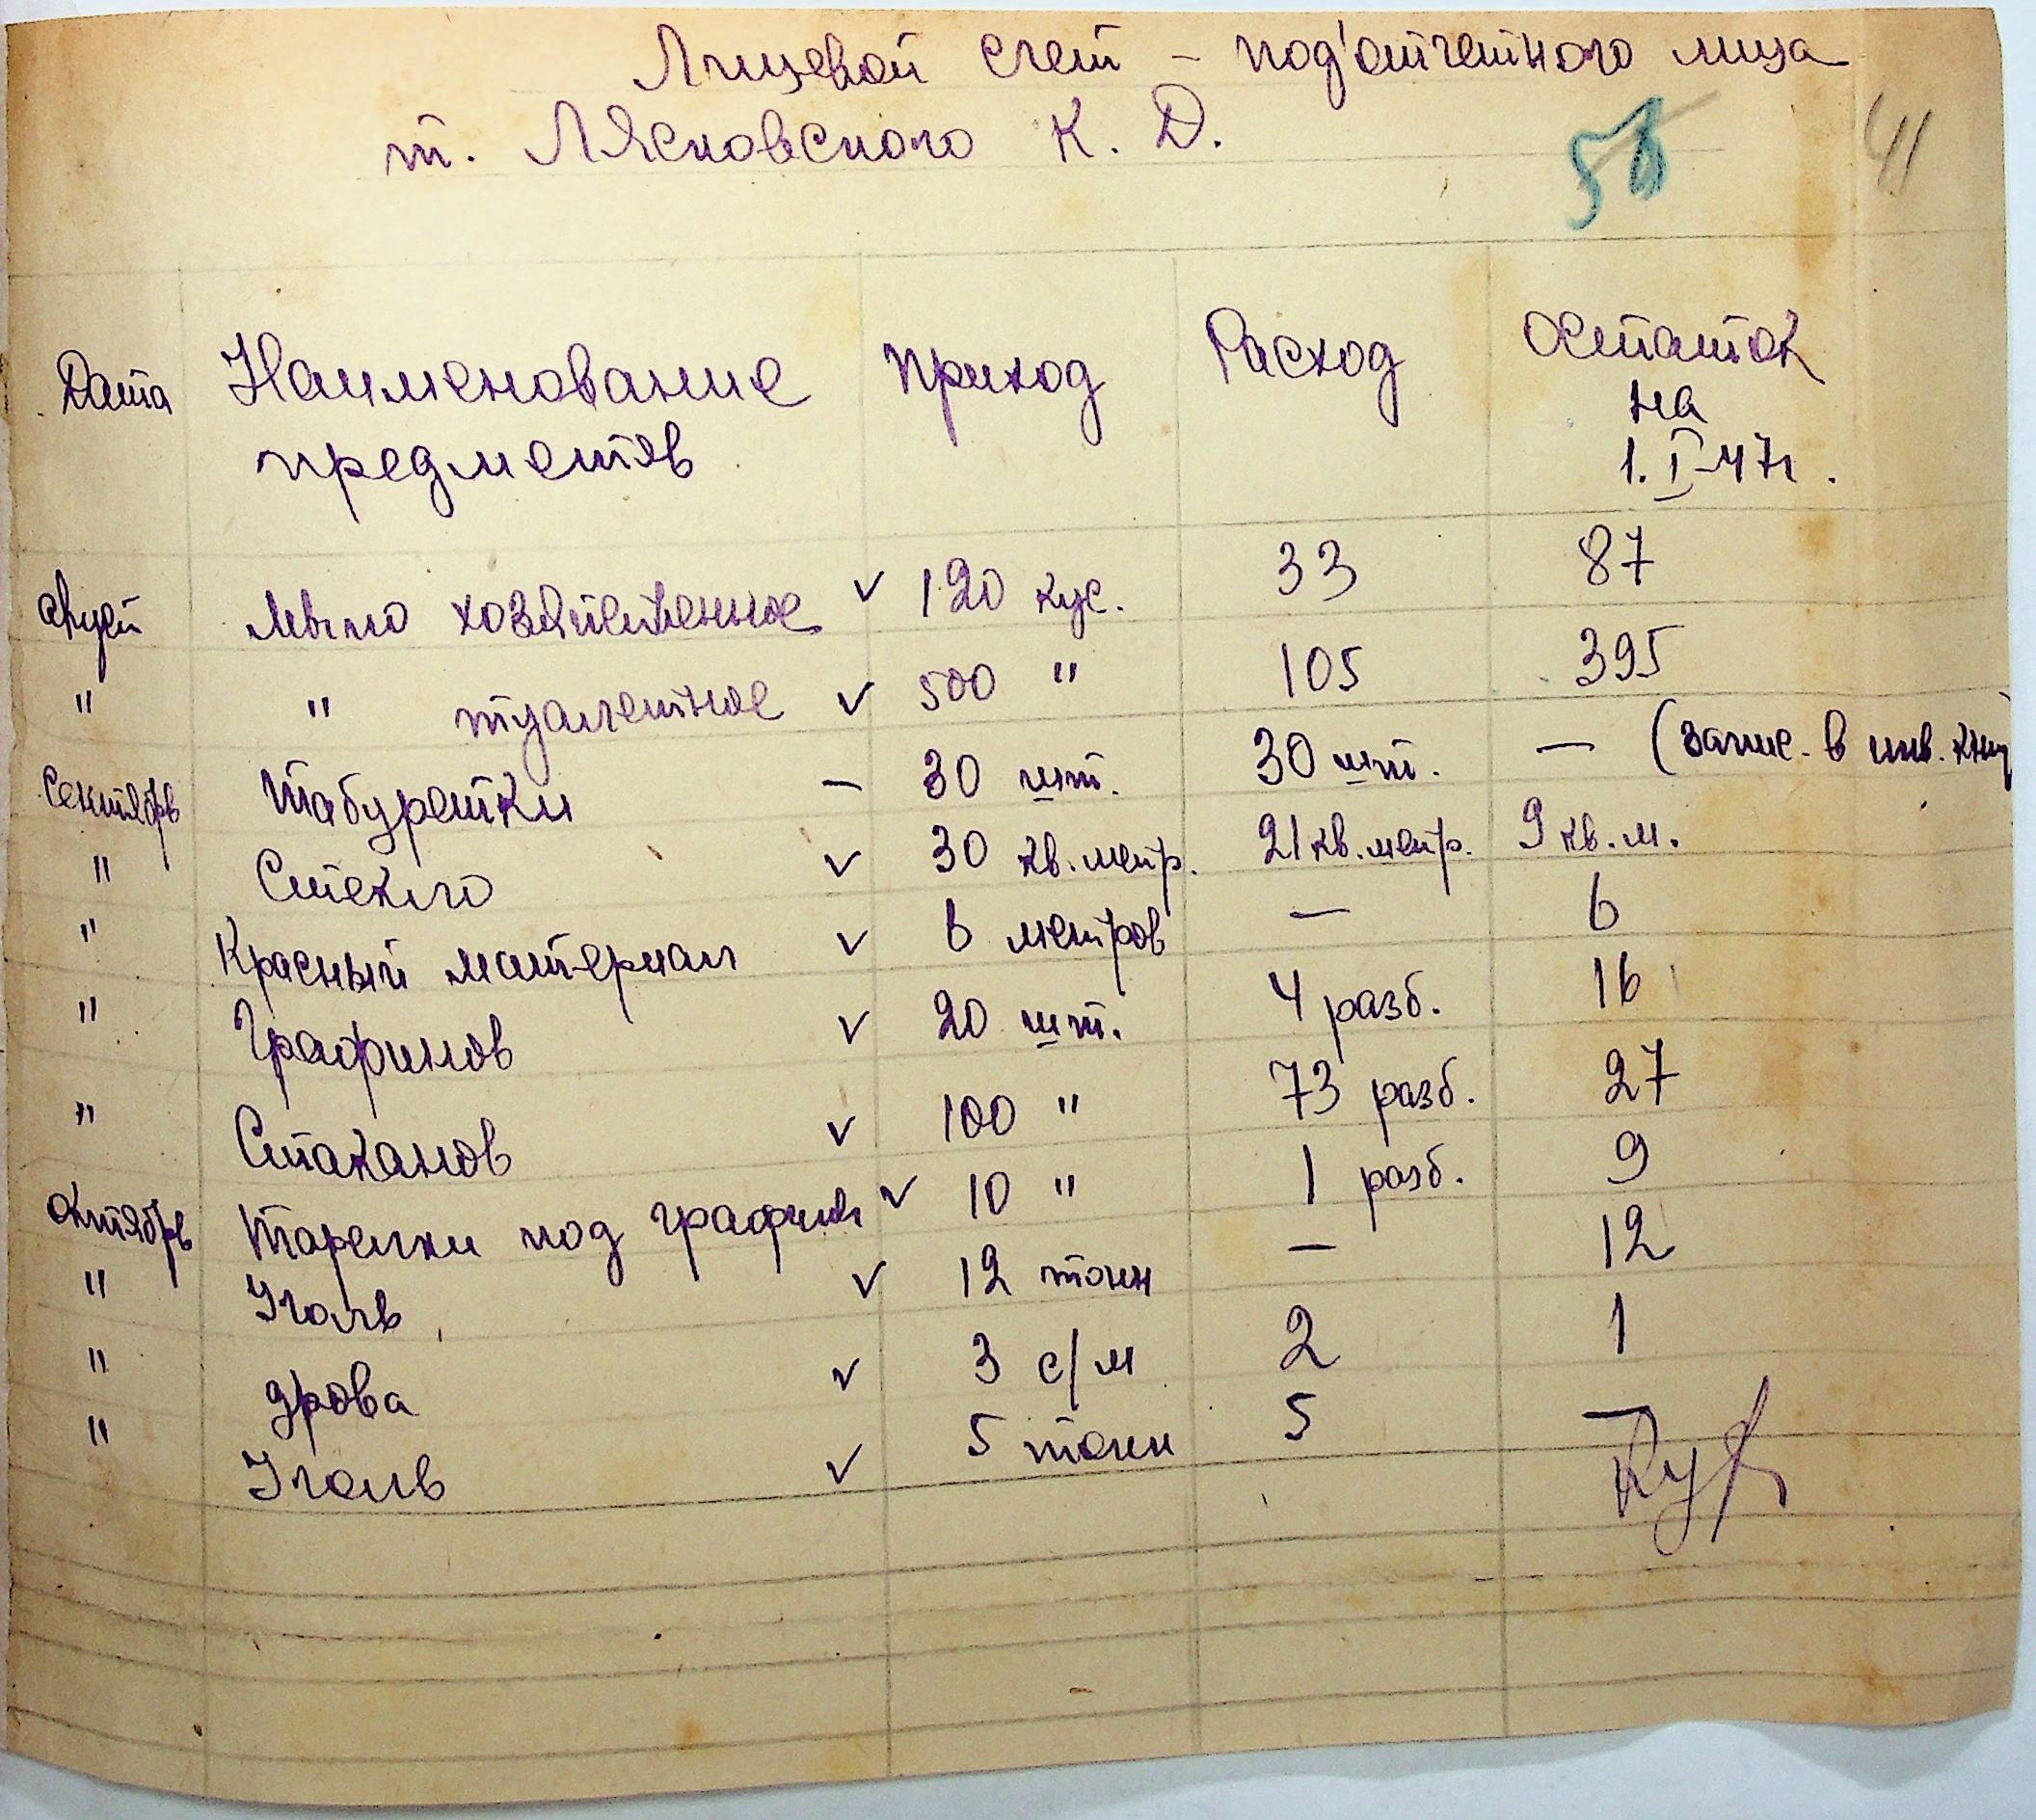 Лицевой счет – под'отчетного лица
т. Лясковского К. Д.
41
Дата Наименование предметов Приход Расход Остаток на 1.I-47г.
Мыло хозяйственное v 120 кус. 33 87
" " туалетное v 500 " 105 395
Сентябрь Табуретки – 30 шт. 30 шт. — (запис. в инв. книг
" Стекло v 30 кв. метр. 21 кв. метр. 9 кв. м.
" Красный материал v 6 метров — 6
" Графинов v 20 шт. 4 разб. 16
" Стаканов v 100 " 73 разб. 27
Октябрь Тарелки под графин v 10 " 1 разб. 9
" Уголь v 12 тонн — 12
" дрова v 3 с/м 2 1
" Уголь v 5 тонн 5 —